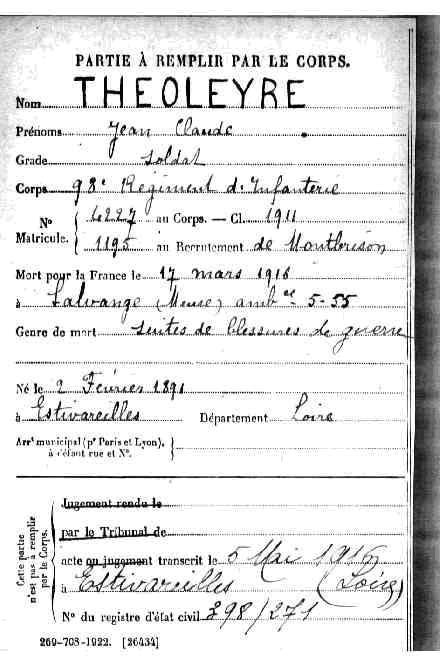 PARTIE À REMPLIR PAR LE CORPS.
Nom THEOLEYRE
Prénoms Jean Claude
Grade Soldat
Corps 98e Régiment d'Infanterie
No Matricule. { 4227 au Corps. — Cl. 1911
1195 au Recrutement de Montbrison
Mort pour la France le 17 mars 1916
à Salvange (Meuse) ambce 5-55
Genre de mort suites de blessures de guerre
Né le 2 Février 1891
à Estivareilles Département Loire
Arrt municipal (pr Paris et Lyon), à défaut rue et No.
Cette partie n'est pas à remplir par le Corps.
Jugement rendu le
par le Tribunal de
acte ou jugement transcrit le 5 Mai 1916
à Estivareilles (Loire)
No du registre d'état civil 298/271
269-708-1922. [26434]